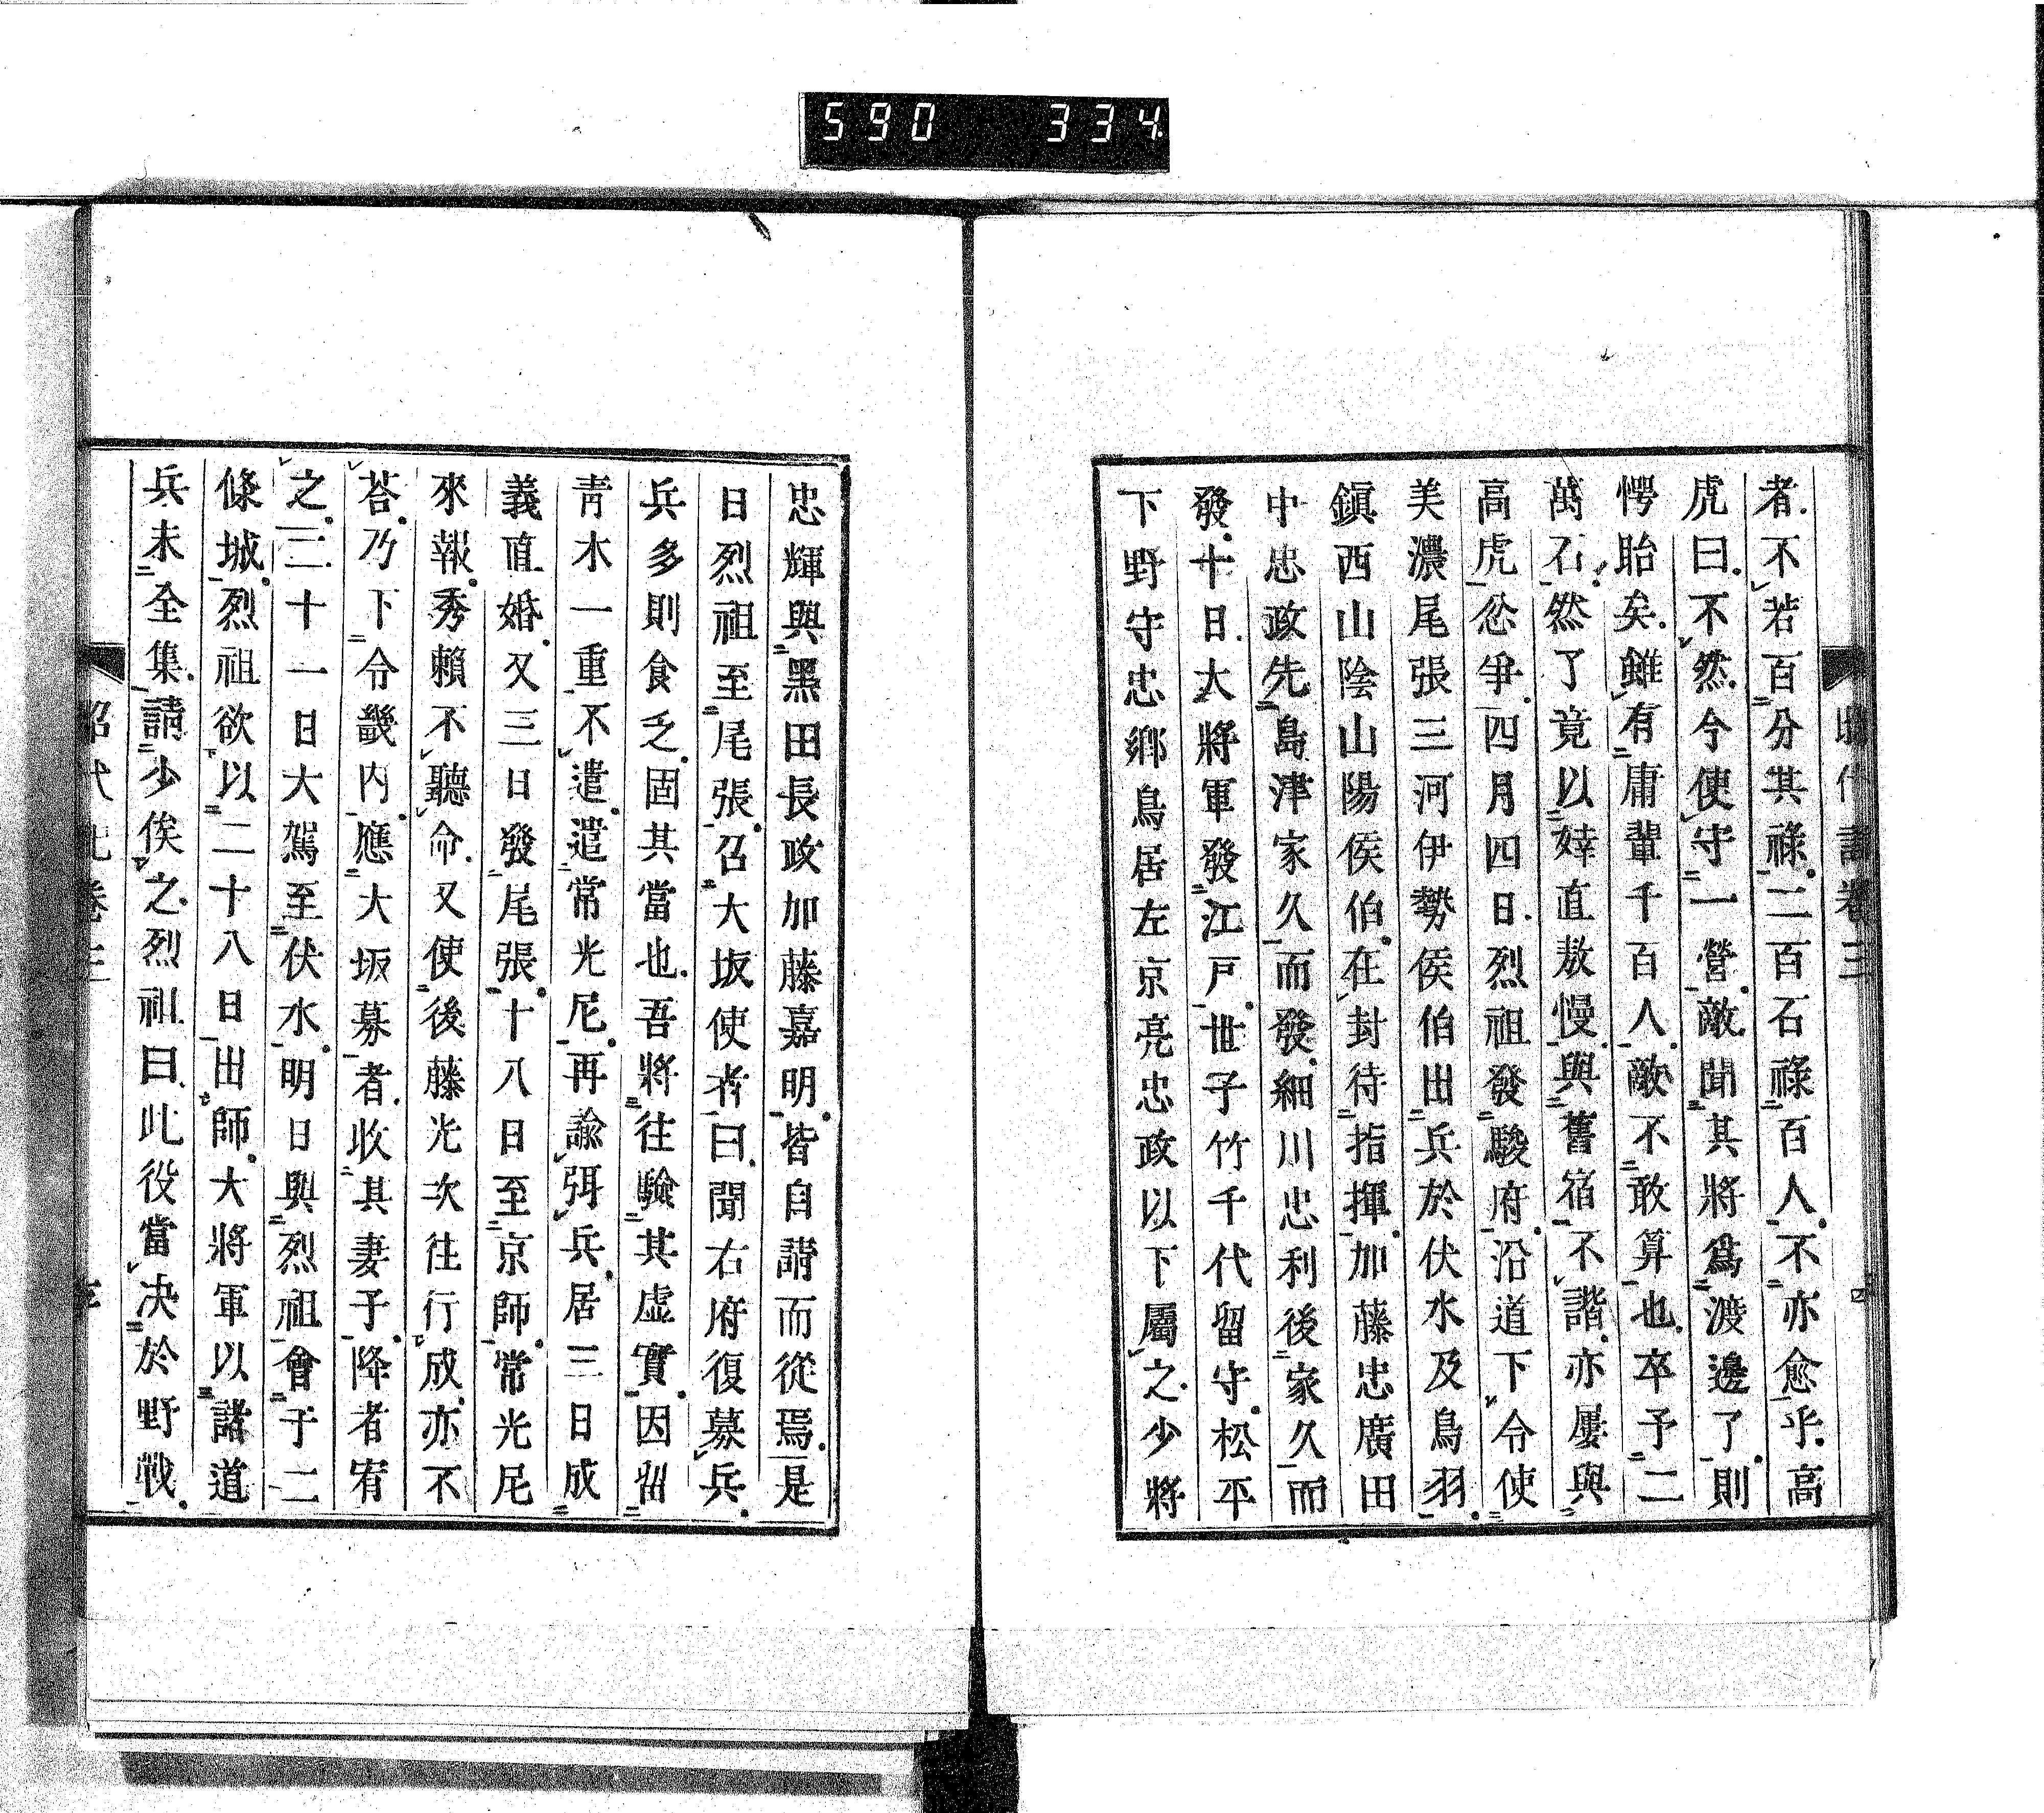 590 334
昭代記卷三 四
者不若百分其祿二百石祿百人不亦愈乎高
虎曰不然今使守一營敵聞其將爲渡邊了則
愕眙矣雖有庸輩千百人敵不敢算也卒予二
萬石然了竟以婞直敖慢與舊宿不諧亦屢與
高虎忿爭四月四日烈祖發駿府沿道下令使
美濃尾張三河伊勢侯伯出兵於伏水及鳥羽
鎭西山陰山陽侯伯在封待指揮加藤忠廣田
中忠政先島津家久而發細川忠利後家久而
發十日大將軍發江戸世子竹千代留守松平
下野守忠鄉鳥居左京亮忠政以下屬之少將
忠輝與黑田長政加藤嘉明皆自請而從焉是
日烈祖至尾張召大坂使者曰聞右府復募兵
兵多則食乏固其當也吾將往驗其虛實因留
靑木一重不遣遣常光尼再諭弭兵居三日成
義直婚又三日發尾張十八日至京師常光尼
來報秀賴不聽命又使後藤光次往行成亦不
荅乃下令畿内應大坂募者收其妻子降者宥
之二十一日大駕至伏水明日與烈祖會于二
條城烈祖欲以二十八日出師大將軍以諸道
兵未全集請少俟之烈祖曰此役當決於野戰
昭代記卷三